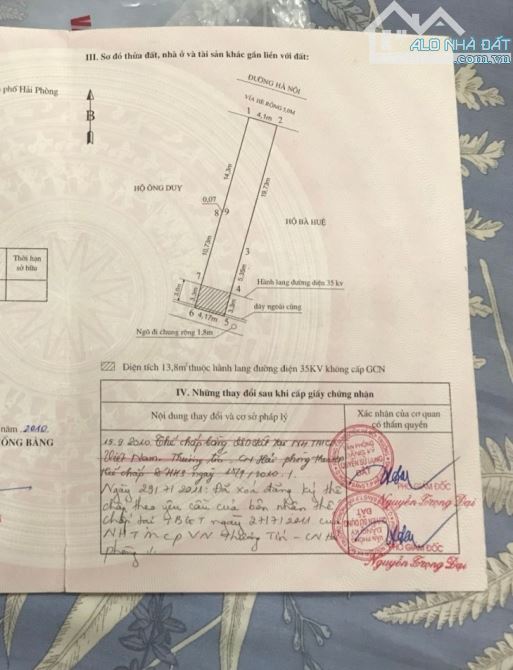 ALO NHÀ ĐẤT
.com.vn
III. Sơ đồ thửa đất, nhà ở và tài sản khác gắn liền với đất:
phố Hải Phòng
B
ĐƯỜNG HÀ NỘI
VỈA HÈ RỘNG 5,0M
1 4,1m 2
14,3m
19,73m
HỘ ÔNG DUY
0,07
8 9
HỘ BÀ HUỆ
10,73m
3
5,35m
Thời hạn
sở hữu
7
4
Hành lang đường điện 35 kv
3,0m
3,3m
3,3m
dây ngoài cùng
6 4,17m 5
Ngõ đi chung rộng 1,8m
Diện tích 13,8m² thuộc hành lang đường điện 35KV không cấp GCN
IV. Những thay đổi sau khi cấp giấy chứng nhận
Nội dung thay đổi và cơ sở pháp lý
Xác nhận của cơ quan
có thẩm quyền
năm 2010
ỒNG BÀNG
15.9.2010 Thế chấp bằng
Việt Nam. Thương Tín. CN Hải phòng
thế chấp
PHÓ GIÁM ĐỐC
Nguyễn Trọng Đại
Ngày 29/7/2011: Đã xoá đăng ký thế
chấp theo yêu cầu của bên nhận thế
chấp tại ngày 27/7/2011 của
NHTMCP VN Thương Tín - CN Hải
phòng
PHÓ GIÁM ĐỐC
Nguyễn Trọng Đại